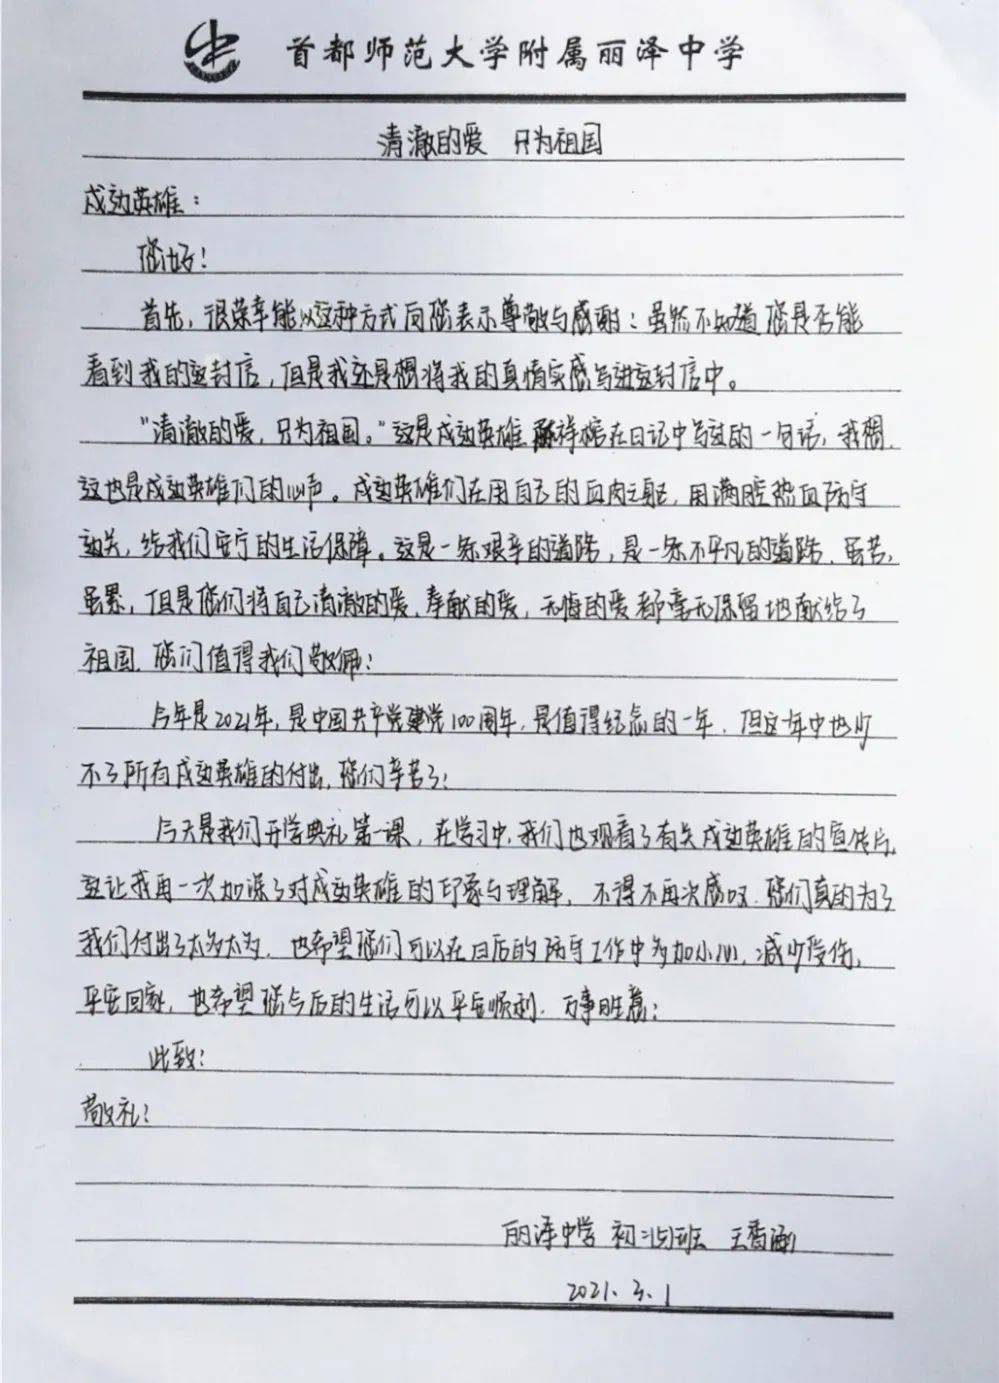 首都师范大学附属丽泽中学
清澈的爱 只为祖国
戍边英雄：
您好！
首先，很荣幸能以这种方式向您表示尊敬与感谢！虽然不知道您是否能
看到我的这封信，但是我还是想将我的真情实感写进这封信中。
“清澈的爱，只为祖国。”这是戍边英雄陈祥榕在日记中写过的一句话，我想，
这也是戍边英雄们的心声。戍边英雄们在用自己的血肉之躯，用满腔热血防守
边关，给我们安宁的生活保障。这是一条艰辛的道路，是一条不平凡的道路，虽苦，
虽累，但是您们将自己清澈的爱，奉献的爱，无悔的爱都毫无保留地献给了
祖国，您们值得我们敬佩！
今年是2021年，是中国共产党建党100周年，是值得纪念的一年，但这一年中也少
不了所有戍边英雄的付出，您们辛苦了！
今天是我们开学典礼第一课，在学习中，我们也观看了有关戍边英雄的宣传片，
这让我再一次加深了对戍边英雄的印象与理解，不得不再次感叹，您们真的为了
我们付出了太多太多，也希望您们可以在日后的防守工作中多加小心，减少受伤，
平安回家，也希望您今后的生活可以平安顺利，万事胜意！
此致！
敬礼！
丽泽中学 初二(5)班 王香涵
2021.3.1